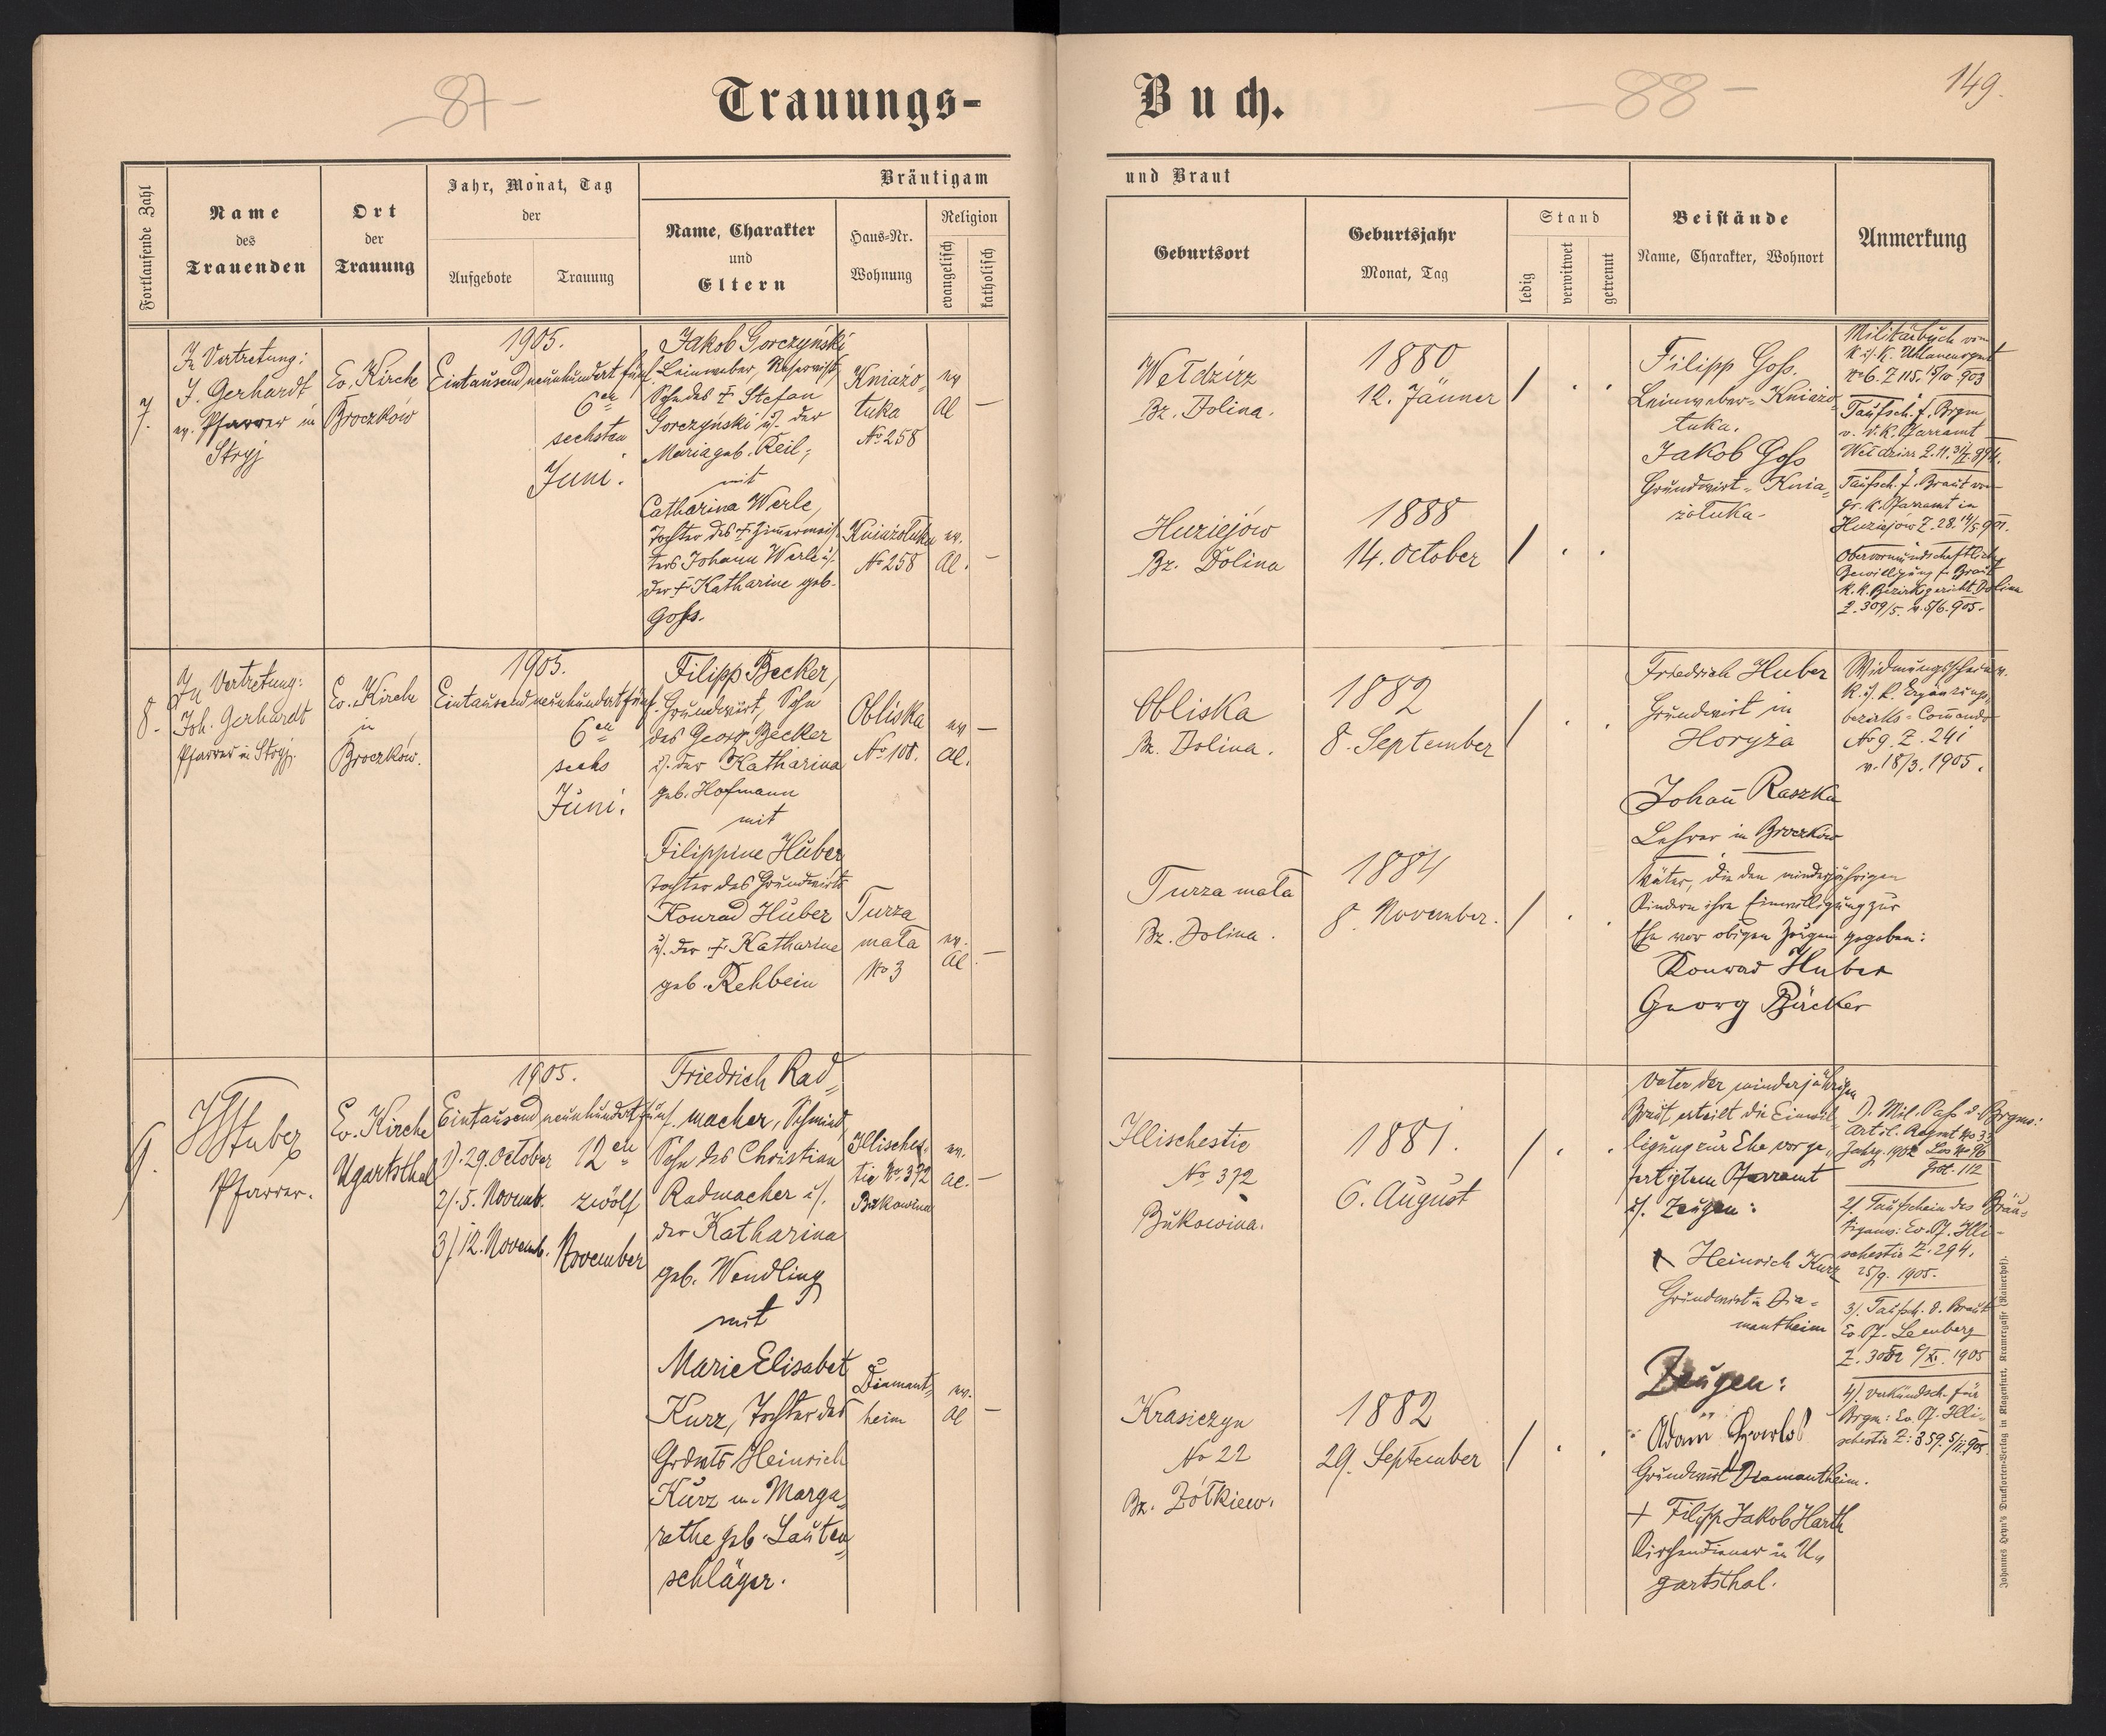 87 -
Trauungs-
Fortlaufende Zahl
Name
des
Trauenden
Ort
der
Trauung
Jahr, Monat, Tag
der
Aufgebote
Trauung
Bräutigam
Name, Charakter
und
Eltern
Haus-Nr.
Wohnung
Religion
evangelisch
katholisch
Buch.
- 88 -
149.
und Braut
Geburtsort
Geburtsjahr
Monat, Tag
Stand
ledig
verwitwet
getrennt
Beistände
Name, Charakter, Wohnort
Anmerkung
7.
In Vertretung:
J. Gerhardt
ev. Pfarrer in
Stryj
Ev. Kirche
Broczków
1905.
Eintausend neunhundert fünf.
6en
sechsten
Juni.
Jakob Gorczyński
Leinweber, Reservist,
Sohn des † Stefan
Gorczyński u. der
Maria geb. Keil;
mit
Catharina Werle,
Tochter des † Zimermeis-
ters Johann Werle u.
der † Katharine geb.
Goss.
Kniazo-
łuka
No 258
Kniazołuka
No 258
ev
Al —
ev.
Al. —
Wełdzirz
Bz. Dolina.
1880
12. Jänner
/ . .
Huziejów
Bz. Dolina
1888
14. October
/ . .
Filipp Goss.
Leinweber - Kniazo-
łuka.
Jakob Goss
Grundwirt - Knia-
zołuka -
Militärbuch vom
k. u. k. Uhlanenrgmt
No 6. Z 115. 15/10 903
Taufsch. f. Brgm
v. r. k. Pfarramt
Wełdzirz
Taufsch. f. Braut von
gr. k. Pfarramt in
Huziejów Z. 28. 14/5 901.
Obervormundschaftliche
Bewilligung f. Braut
k. k. Bezirksgericht Dolina
Z. 309/5. v. 5/6. 905.
8.
In Vertretung:
Joh. Gerhardt
Pfarrer in Stryj.
Ev. Kirche
in
Broczków.
1905.
Eintausend neunhundert fünf.
6en
sechs
Juni.
Filipp Becker,
Grundwirt, Sohn
des Georg Becker
u. der Katharina
geb. Hofmann
mit
Filippine Huber
Tochter des Grundwirts
Konrad Huber
u. der † Katharine
geb. Rehbein
Obliska
No 108.
Turza
mała
No 3
ev —
Al.
ev.
Al. —
Obliska
Bz. Dolina.
1882
8. September
/ . .
Turza mała
Bz. Dolina.
1884
8. November.
/ . .
Friedrich Huber
Grundwirt in
Horyża
Johañ Raszka
Lehrer in Broczków
Väter, die den minderjährigen
Kindern ihre Einwilligung zur
Ehe vor obigen Zeugen gegeben:
Konrad Huber
Georg Bäcker
Widmungsschein v.
k. u. k. Ergänzungs-
bezirks-Com̄ando
No 9. Z. 241
v. 18/3. 1905.
9.
Stuber
Pfarrer.
Ev. Kirche
Ugartsthal
1905.
Eintausend neunhundert fünf.
1). 29. October
2/. 5. Novemb.
3/ 12. Novemb.
12en
zwölf
November
Friedrich Rad-
macher, Schmied,
Sohn des Christian
Radmacher u.
der Katharina
geb. Wendling
mit
Marie Elisabet
Kurz, Tochter des
Grdwts Heinrich
Kurz u. Marga-
rethe geb. Lauten-
schläger.
Illisches-
tie No 372
Bukowina
Diamant-
heim
ev.
Al. —
ev.
Al —
Illischestie
No 372
Bukowina.
1881.
6. August
/ . .
Krasiczyn
No 22
Bz. Żółkiew.
1882
29. September
/ . .
Vater der minderjährigen
Braut erteilt die Einwil-
ligung zur Ehe vor ge-
fertigtem Pfarramt
u. Zeugen:
Heinrich Kurz
Grundwirt in Dia-
mantheim
Zeugen:
Adam
Grundwirt Diamantheim.
+ Filipp Jakob Harth
Kirchendiener in U-
gartsthal.
1). Mil. Pass d. Brgms:
Artil. Regmt No 33
Jahrg. 1902 Los No 96
Grbl. 112
2/. Taufschein des Bräu-
tigams: Ev. Pf. Illi-
schestie Z. 294.
25/9. 1905.
3/. Taufsch. d. Braut
Ev. Pf. Lemberg
4/. Verkündsch. für
Brgm: Ev. Pf. Illi-
schestie Z: 359. 5/11 905.
Johannes Heyn's Drucksorten-Verlag in Klagenfurt, Kramergasse (Rainerhof).